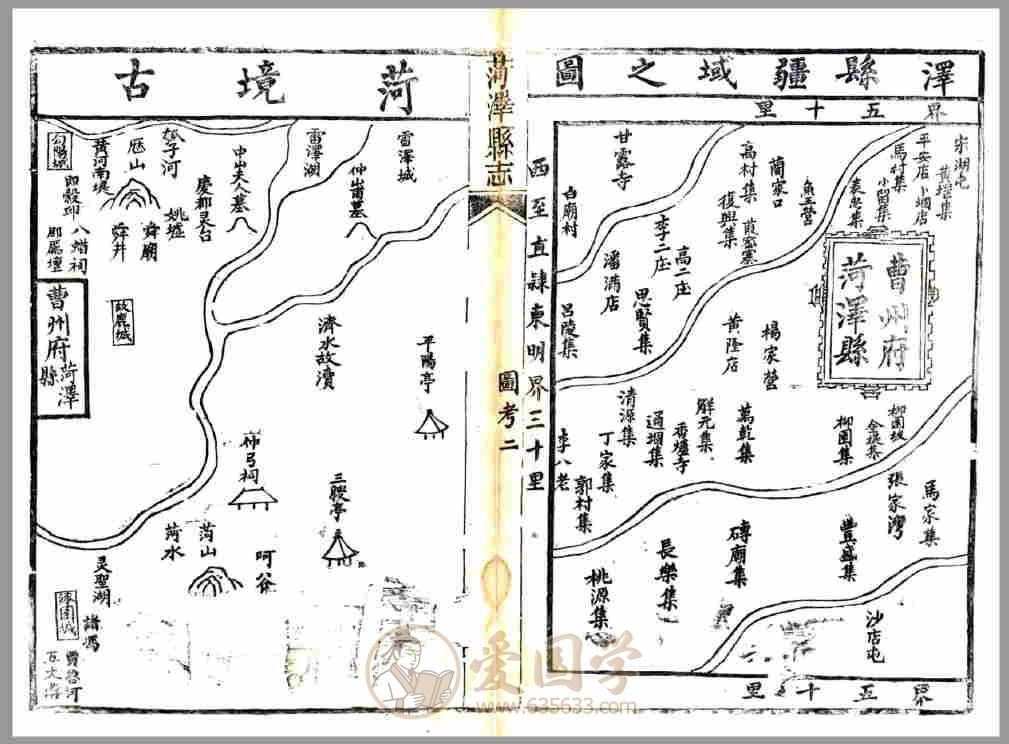 澤縣疆域之圖
界五十里
宋湖屯
黃堽集
平安店
小堌店
馬村集
小留集
袁忠集
魚王營
蘭家口
高村集
葭密寨
復興集
甘露寺
白廟村
李二庄
高二庄
潘滿店
思賢集
呂陵集
黃隆店
楊家營
曹州府
菏澤縣
清源集
丁家集
李八老
郭村集
通堌集
香爐寺
解元集
萬乾集
柳園集
張家灣
馬家集
豐盛集
磚廟集
長樂集
桃源集
沙店屯
界五十里
西至直隸東明界三十里
菏澤縣志
圖考二
菏境古
雷澤城
仲山甫墓
雷澤湖
中山夫人墓
慶都灵台
瓠子河
姚墟
歷山
舜廟
舜井
黃河南堤
句陽城
即穀邱
八蜡祠
郡厲壇
曹州府
菏澤縣
故鹿城
濟水故瀆
平陽亭
三鬷亭
菏山
菏水
呵谷
灵聖湖
諸馮
賈魯河
爱国学
www.635633.com